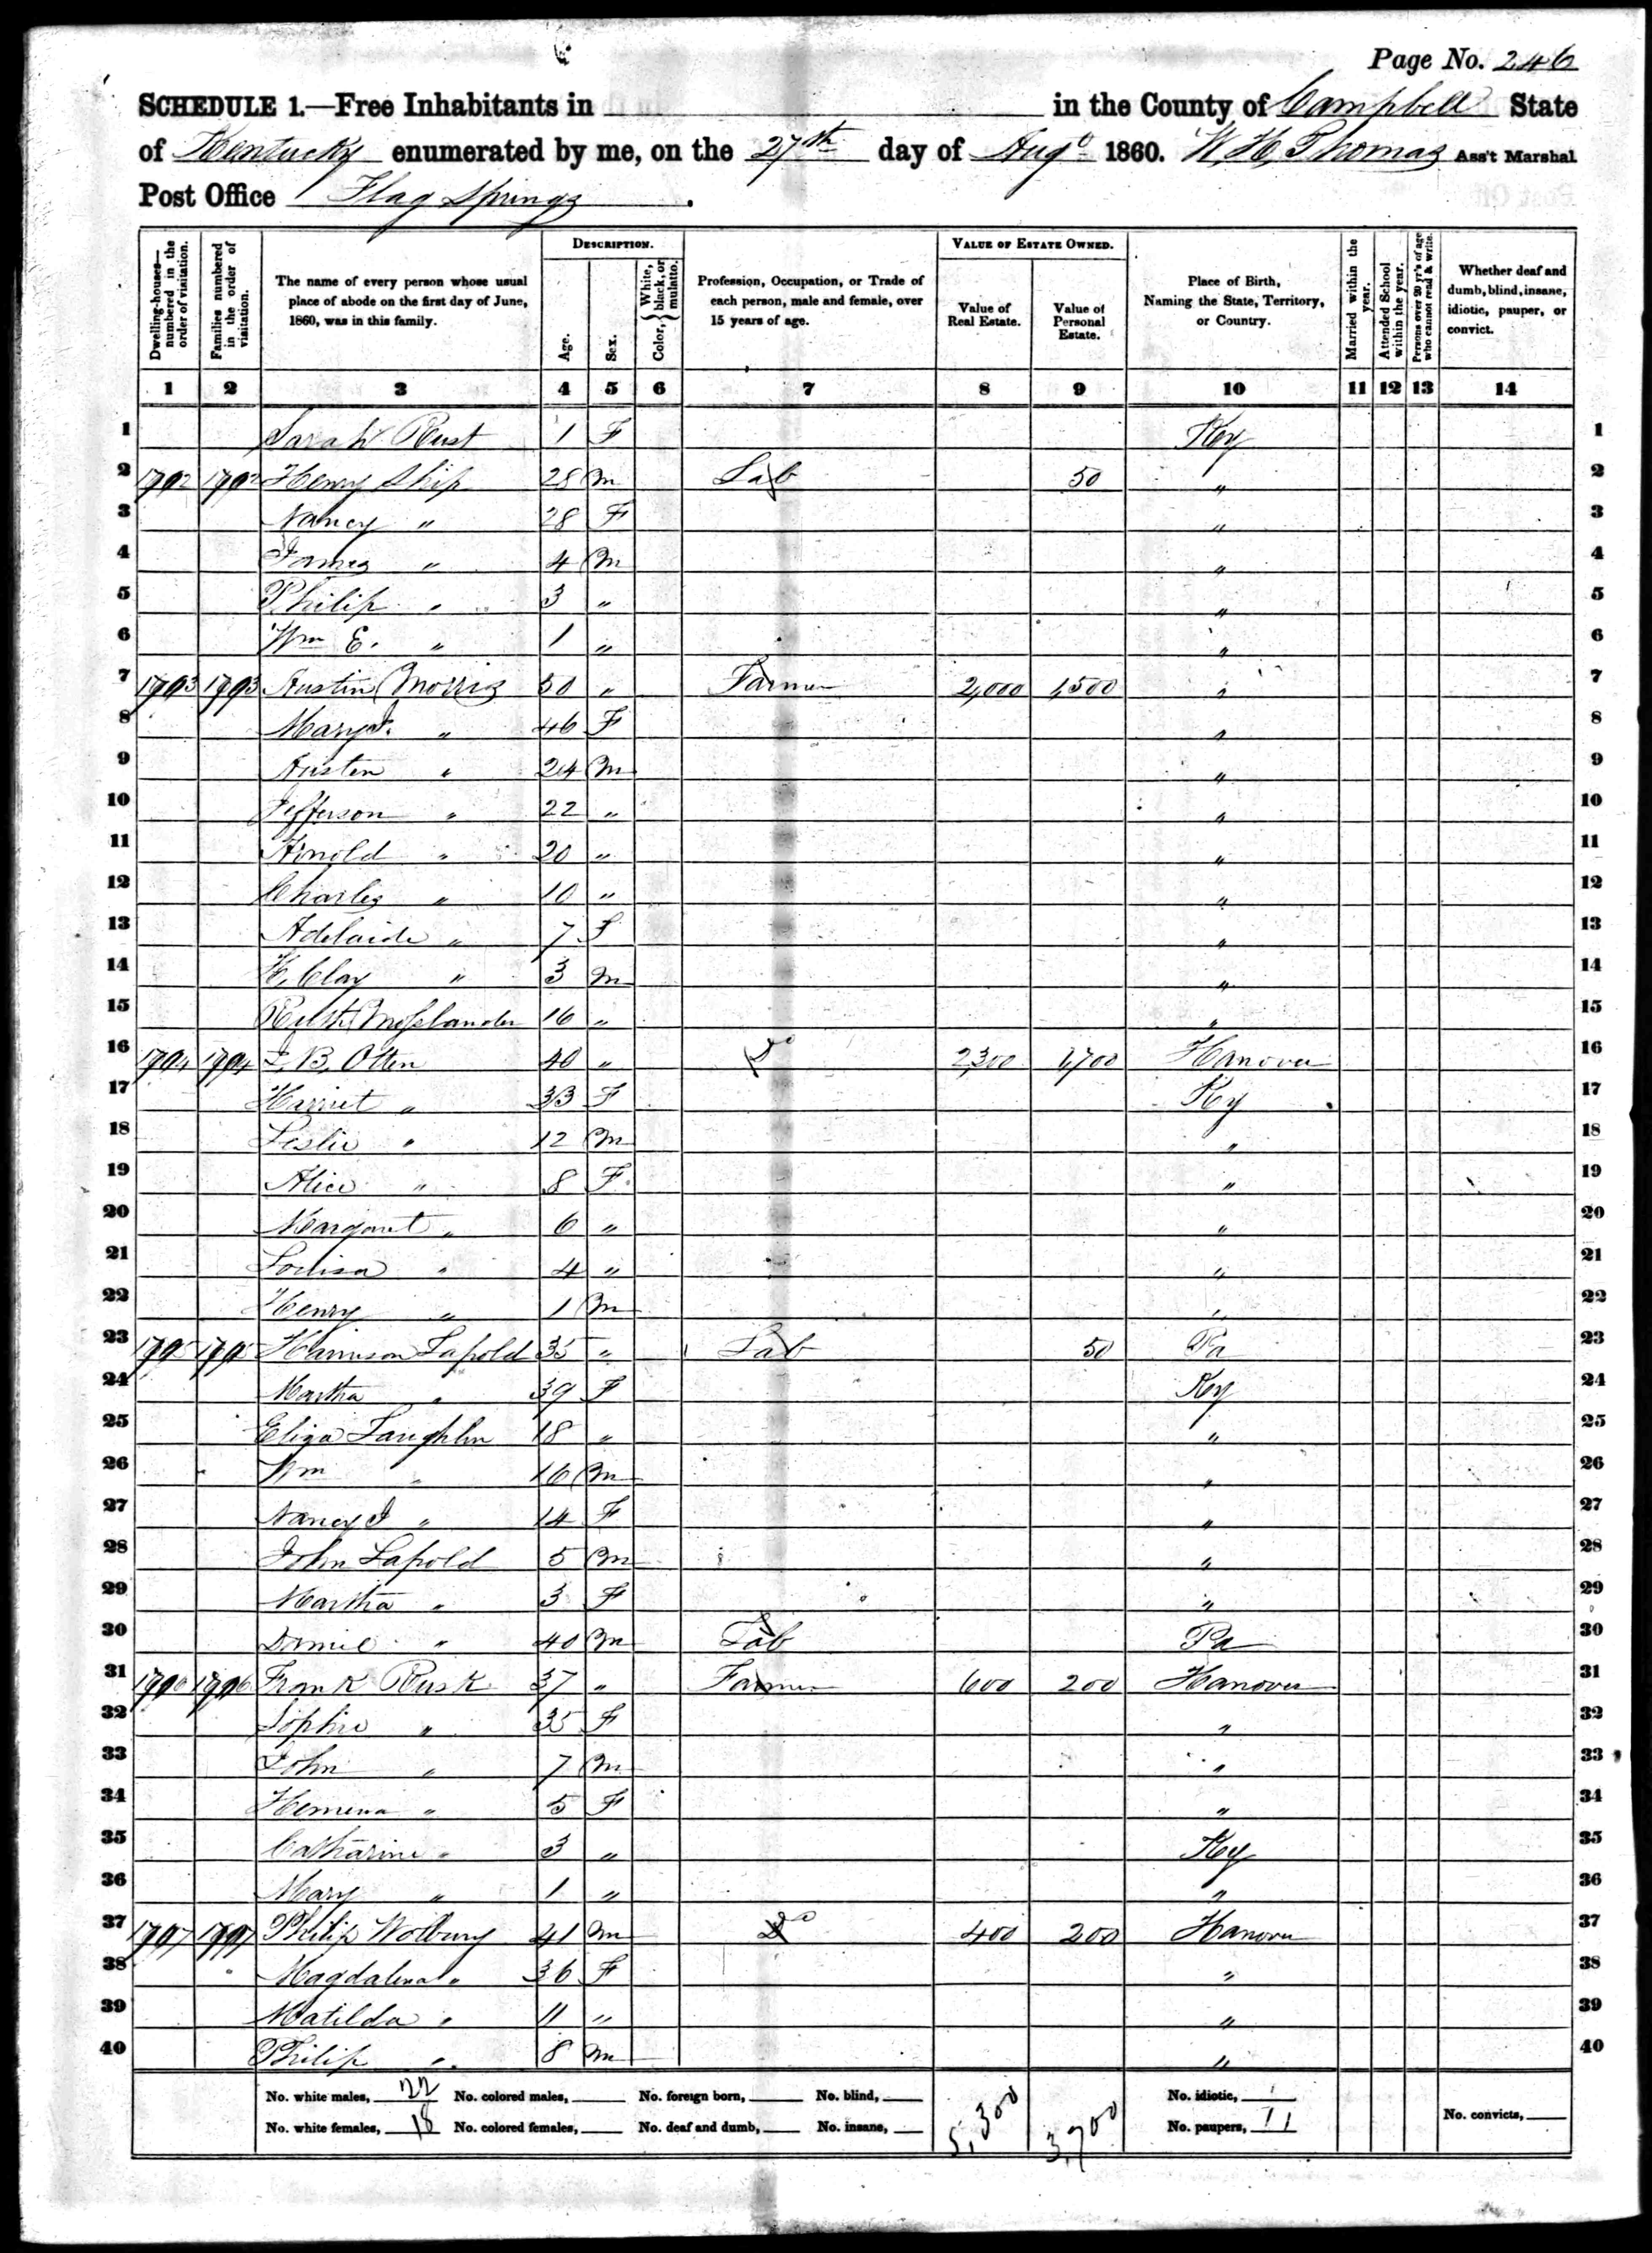 Page No. 246
SCHEDULE 1.—Free Inhabitants in in the County of Campbell State
of Kentucky enumerated by me, on the 27th day of Augt 1860. W. H. Thomas Ass't Marshal
Post Office Flag Springs.
Dwelling-houses—numbered in the order of visitation. Families numbered in the order of visitation. The name of every person whose usual place of abode on the first day of June, 1860, was in this family. DESCRIPTION. Age. Sex. Color, {White, black, or mulatto. Profession, Occupation, or Trade of each person, male and female, over 15 years of age. VALUE OF ESTATE OWNED. Value of Real Estate. Value of Personal Estate. Place of Birth, Naming the State, Territory, or Country. Married within the year. Attended School within the year. Persons over 20 yr's of age who cannot read & write. Whether deaf and dumb, blind, insane, idiotic, pauper, or convict.
1 2 3 4 5 6 7 8 9 10 11 12 13 14
1 Sarah Rust 1 F Key 1
2 1792 1792 Henry Ship 28 m Lab 50 " 2
3 Nancy " 28 F " 3
4 James " 4 m " 4
5 Philip " 3 " " 5
6 Wm E. " 1 " " 6
7 1793 1793 Austin Morris 50 " Farmer 2,000 1,500 " 7
8 Mary J. " 46 F " 8
9 Austen " 24 m " 9
10 Jefferson " 22 " " 10
11 Arnold " 20 " " 11
12 Charles " 10 " " 12
13 Adelaide " 7 f " 13
14 H. Clay " 3 m " 14
15 16 " " 15
16 1794 1794 J. B. Otten 40 " Do 2300 1,700 Hanover 16
17 Harriet " 33 F Key 17
18 Leslie " 12 m " 18
19 Alice " 8 F " 19
20 Margaret " 6 " " 20
21 Louisa " 4 " " 21
22 Henry " 1 m " 22
23 1795 1795 Harrison Lapold 35 " Lab 50 Pa 23
24 Martha " 39 F Key 24
25 Eliza Laughlin 18 " " 25
26 Wm " 16 m " 26
27 Nancy J " 14 F " 27
28 John Lapold 5 m " 28
29 Martha " 3 F " 29
30 Daniel " 40 m Lab Pa 30
31 1796 1796 Frank Rusk 37 " Farmer 600 200 Hanover 31
32 Sophie " 35 F " 32
33 John " 7 m " 33
34 Hemena " 5 F " 34
35 Catharine " 3 " Key 35
36 Mary " 1 " " 36
37 1797 1797 Philip Wolbury 41 m Do 400 200 Hanover 37
38 Magdalena " 36 F " 38
39 Matilda " 11 " " 39
40 Philip " 8 m " 40
No. white males, 22 No. colored males, No. foreign born, No. blind, 5,300 3,700 No. idiotic,
No. white females, 18 No. colored females, No. deaf and dumb, No. insane, No. paupers, 11 No. convicts,